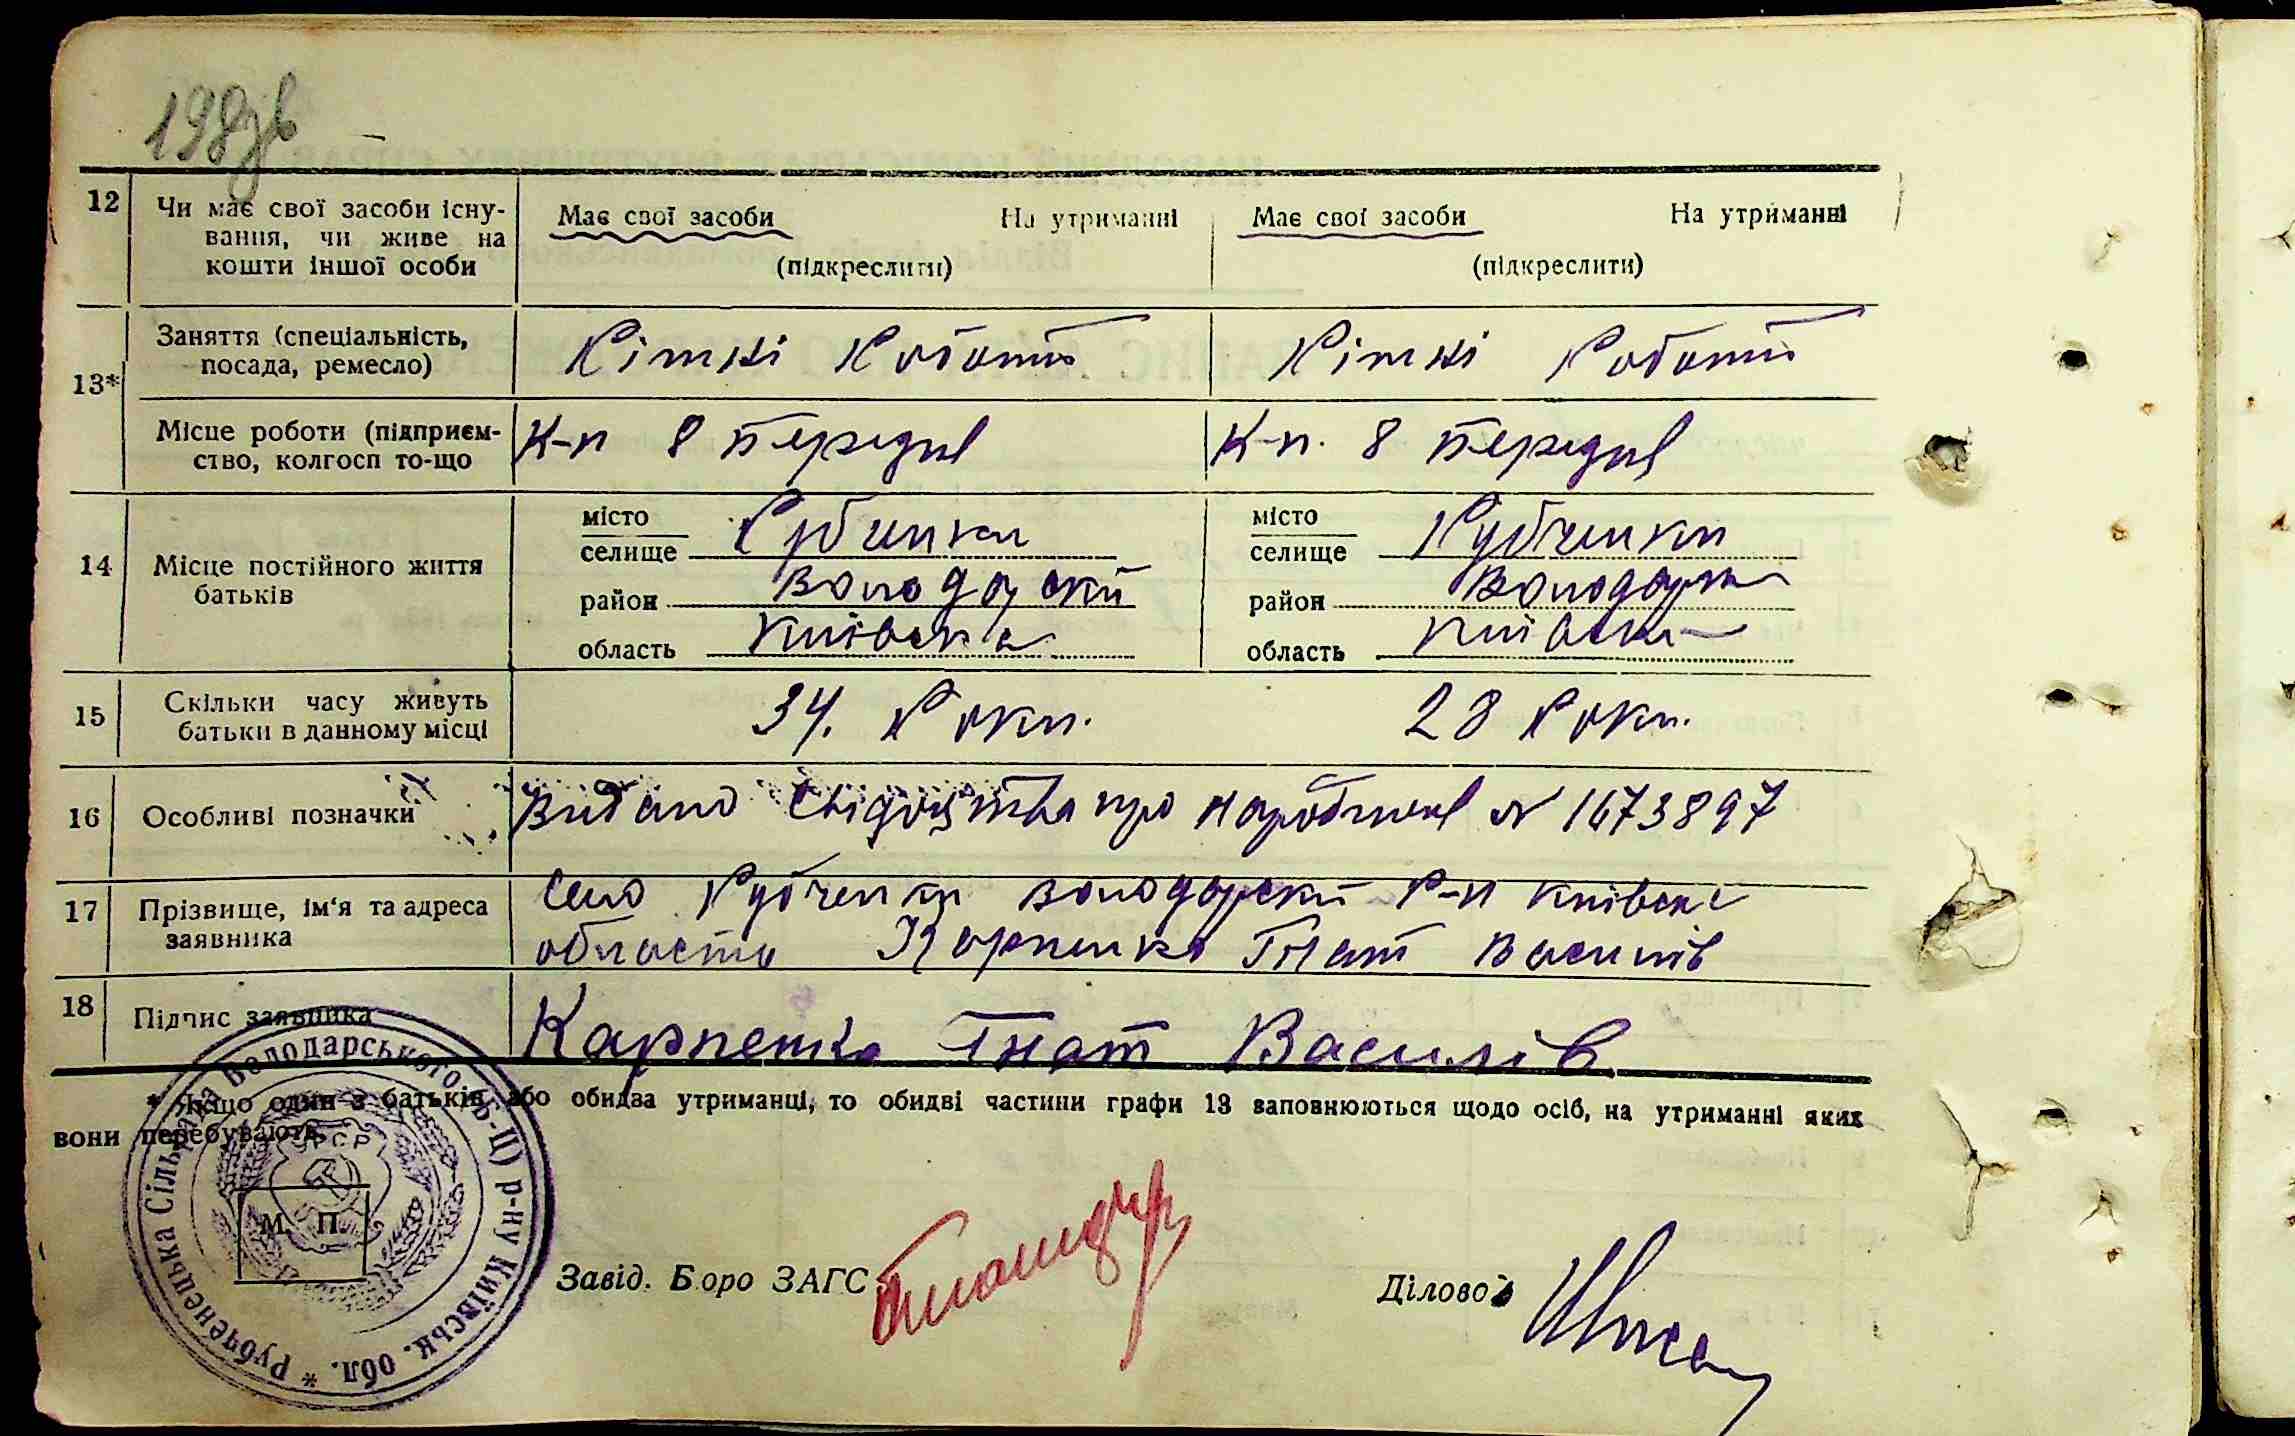 198зв
12 Чи має свої засоби існу- Має свої засоби На утриманні Має свої засоби На утриманні
вання, чи живе на
кошти іншої особи (підкреслити) (підкреслити)
13* Заняття (спеціальність, Різні Роботи Різні Роботи
посада, ремесло)
Місце роботи (підприєм- К-п 8 К-п. 8
ство, колгосп то-що
14 Місце постійного життя місто Рубченки місто Рубченки
батьків селище селище
район Володарский район Володарск
область Київска область Київска
15 Скільки часу живуть 34. Роки. 28 Роки.
батьки в данному місці
16 Особливі позначки Видано Свідоцтва про народження N 1673897
17 Прізвище, ім'я та адреса Село Рубченки Володарски Р-н Київскі
заявника області Карпенко Гнат Василів
18 Підпис заявника Карпенко Гнат Василів
* Якщо один з батьків або обидва утриманці, то обидві частини графи 13 заповнюються щодо осіб, на утриманні яких
вони перебувають.
Рубченецька Сільрада Володарського (Б-Ц) р-ну Київськ. обл. *
УРСР
М. П.
Завід. Бюро ЗАГС Діловод